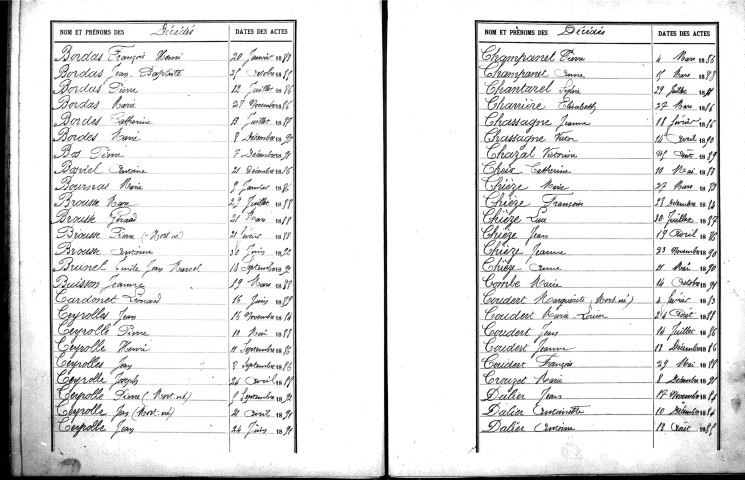 NOM ET PRÉNOMS DES Décédés DATES DES ACTES
Bordas François Henri 20 Janvier 18
Bordas Jean Baptiste 25 Octobre 18
Bordas Pierre 12 Juillet 1886
Bordas Marie 27 Novembre 1886
Bordes Catherine 13 Juillet 18
Bordes Marie 8 Décembre 18
Bos Pierre 7 Décembre 18
Bariel Antoine 21 Décembre 1886
Bournas Marie 9 Janvier 1886
Brousse Marie 29 Juillet 1888
Brousse Géraud 21 Mars 1888
Brousse Pierre (Mort-né) 21 février 1888
Brousse Antoine 30 Juin 1892
Brunel Emile Jean Marcel 16 Septembre 18
Buisson Jeanne 29 Mars 1888
Cardonet Léonard 16 Juin 1889
Ceyrolles Jean 16 Novembre 1884
Ceyrolle Pierre 10 Mai 1888
Ceyrolle Henri 11 Septembre 1886
Ceyrolles Jean 8 Septembre 1886
Ceyrolle Joseph 24 Avril 18
Ceyrolle Pierre (Mort-né) Septembre 18
Ceyrolle Jean (Mort-né) 21 Avril 1891
Ceyrolle Jean 24 Juin 1891
NOM ET PRÉNOMS DES Décédés DATES DES ACTES
Champanet Pierre 4 Mars 1886
Champanet Anne 15 Mars 1888
Chantarel Sylvie 29 Juillet 18
Charrière Elisabeth 27 Mars 1886
Chassagne Jeanne 18 février 1886
Chassagne Victor 16 Avril 1890
Chazal Victorine 25 Août 1889
Cheix Catherine 10 Mai 1883
Chièze Marie 27 Mars 1883
Chièze François 28 Décembre 1884
Chièze Luc 30 Juillet 1887
Chièze Jean 19 Avril 1886
Chièze Jeanne 23 Novembre 1890
Chièze Anne 11 Mai 1890
Combe Marie 14 Octobre 1891
Coudert Marguerite (Mort-né) 4 février 1883
Coudert Marie Louise 24 Août 1888
Coudert Jean 14 Juillet 1886
Coudert Jeanne 13 Décembre 1886
Coudert François 29 Mai 1888
Crouzet Marie 8 Décembre 18
Dalier Jean 17 Novembre 18
Dalier Antoinette 10 Décembre 1884
Dalier Antoine 13 Août 1885